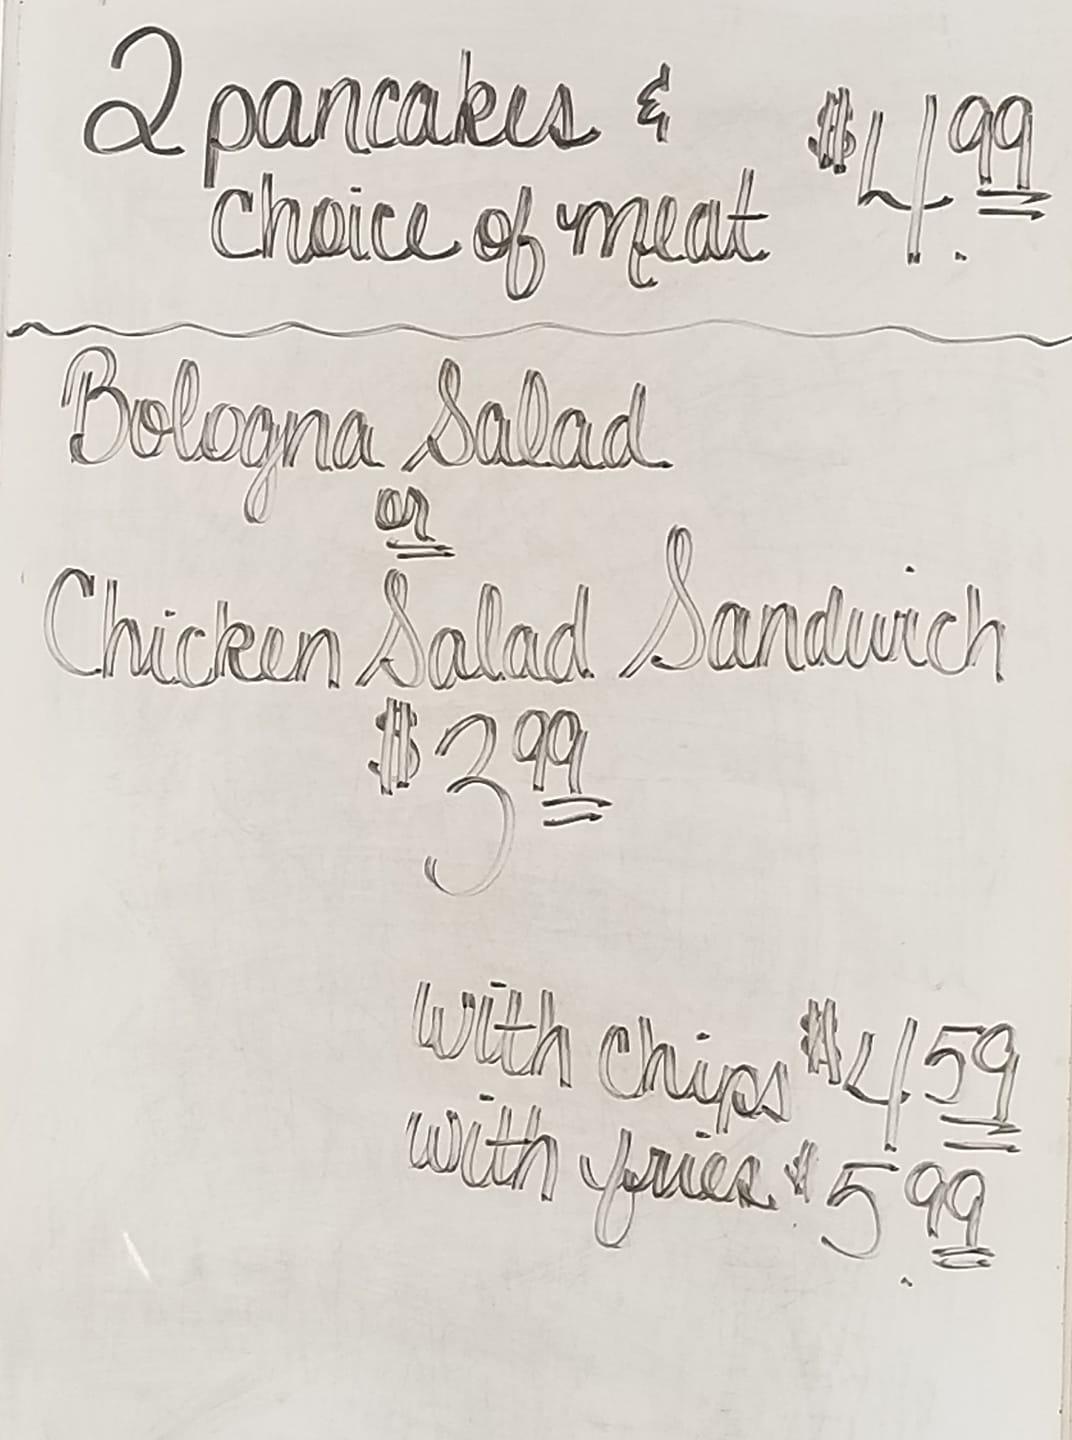 2 pancakes & $4.99
choice of meat
Bologna Salad
or
Chicken Salad Sandwich
$3 99
with chips $4 59
with fries $5 99